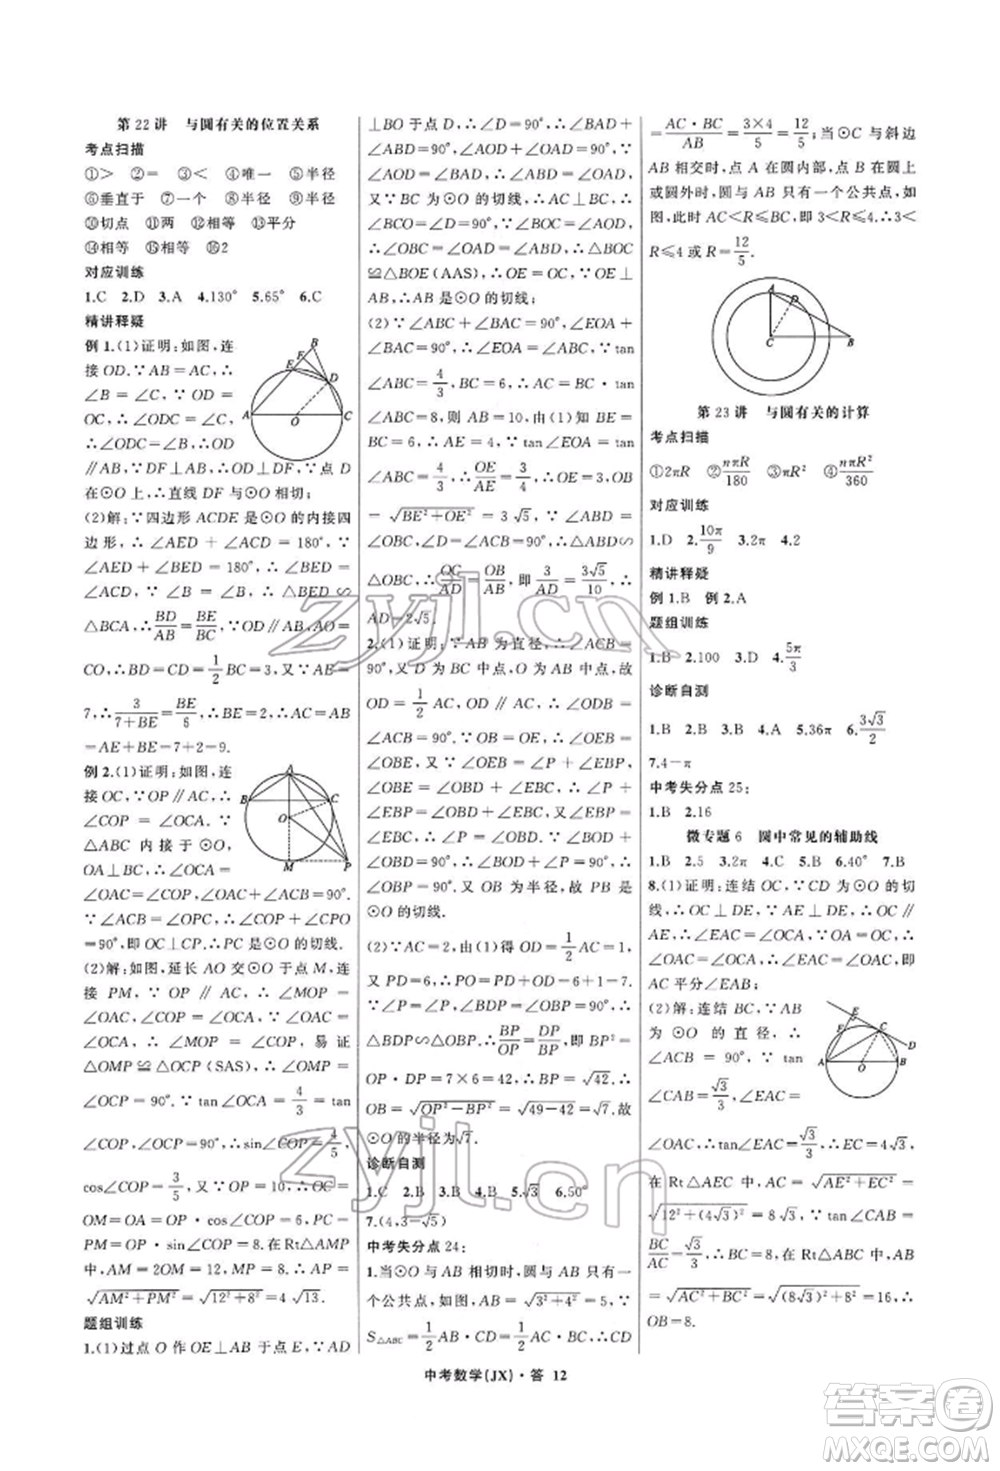 第 22 讲　与圆有关的位置关系
考点扫描
①>　②=　③<　④唯一　⑤半径
⑥垂直于　⑦一个　⑧半径　⑨半径
⑩切点　⑪两　⑫相等　⑬平分
⑭相等　⑮相等　⑯2
对应训练
1.C　2.D　3.A　4.130°　5.65°　6.C
精讲释疑
例 1.(1)证明:如图,连
接 OD.∵AB=AC,∴
∠B=∠C,∵OD=
OC,∴∠ODC=∠C,
∴∠ODC=∠B,∴OD
∥AB,∵DF⊥AB,∴OD⊥DF,∵点 D
在⊙O 上,∴直线 DF 与⊙O 相切;
(2)解:∵四边形 ACDE 是⊙O 的内接四
边形,∴∠AED+∠ACD=180°,∵
∠AED+∠BED=180°,∴∠BED=
∠ACD,∵∠B=∠B,∴△BED∽
△BCA,∴BD/AB=BE/BC,∵OD∥AB,AO=
CO,∴BD=CD=1/2BC=3,又∵AE=
7,∴3/(7+BE)=BE/6,∴BE=2,∴AC=AB
=AE+BE=7+2=9.
例 2.(1)证明:如图,连
接 OC,∵OP∥AC,∴
∠ACO=∠COP,∵
△ABC 内接于⊙O,
∴OA=OC,∴
∠OAC=∠OCA,∴∠OAC=∠COP.
∵∠OAC+∠CPO=90°,∴∠COP+∠CPO
=90°,即 OC⊥CP.∴PC 是⊙O 的切线.
(2)解:如图,延长 AO 交⊙O 于点 M,连
接 PM,∵OP∥AC,∴∠MOP=
∠OAC,∠COP=∠OCA,∵∠OAC=
∠OCA,∴∠MOP=∠COP,易证
△OMP≌△OCP(SAS),∴∠OMP=
∠OCP=90°.∵tan∠OAC=4/3=tan
∠COP,∠OCP=90°,∴sin∠COP=4/5,
cos∠COP=3/5,又∵OP=10,∴OC=
OM=OA=OP·cos∠COP=6,PC=
PM=OP·sin∠COP=8.∴在Rt△AMP
中,AM=12,PM=8,∴AP=
√(AM²+PM²)=√(12²+8²)=4√13.
题组训练
1.(1)过点 O 作 OE⊥AB 于点 E,∵AD
⊥BO 于点 D,∴∠D=90°,∴∠BAD+
∠ABD=90°,∠AOD+∠OAD=90°,∵
∠AOD=∠BAD,∴∠ABD=∠OAD,
又∵BC 为⊙O 的切线,∴AC⊥BC,∴
∠BCO=∠D=90°,∵∠BOC=∠AOD,
∴∠OBC=∠OAD=∠ABD,∴△BOC
≌△BOE(AAS),∴OE=OC,∵OE⊥
AB,∴AB 是⊙O 的切线;
(2)∵∠ABC+∠BAC=90°,∠EOA+
∠BAC=90°,∴∠EOA=∠ABC,∵tan
∠ABC=4/3,BC=6,∴AC=BC·tan
∠ABC=8,则 AB=10,由(1)知 BE=
BC=6,∴AE=4,∵tan∠EOA=tan
∠ABC=4/3,∴OE/AE=3/4,∴OE=3,OB
=√(BE²+OE²)=3√5,∵∠ABD=
∠OBC,∠D=∠ACB=90°,∴△ABD∽
△OBC,∴OC/AD=OB/AB,即3/AD=3√5/10,∴
AD=2√5.
2.(1)证明:如图,连接 OE,∵∠ACB=
90°,又∵D 为 BC 中点,O 为 AB 中点,故
OD=1/2AC,OD∥AC,∴∠ODB=
∠ACB=90°.∵OB=OE,∴∠OEB=
∠OBE,又∵∠P=∠EBP,∠OEB=
∠OBE=∠P+∠EBP,∴∠OBE=
∠EBP+∠P,∴∠OBP=∠OBE+
∠EBP=∠P+∠EBP+∠EBP=90°,
∴∠OBP=90°.又 OB 为半径,故 PB 是
⊙O 的切线.
(2)∵AC=2,由(1)得 OD=1/2AC=1,
又 PD=6,∴PO=PD+OD=6+1=7.
∵∠P=∠P,∠BDP=∠OBP=90°,∴
△BDP∽△OBP,∴BP/OP=DP/BP,即 BP²=
OP·DP=7×6=42,∴BP=√42.∴
OB=√(OP²−BP²)=√(49−42)=√7.故
⊙O的半径为√7.
诊断自测
1.C　2.B　3.B　4.B　5.√3　6.50°
7.(4,3−√5)
中考失分点 24:
1.当⊙O 与 AB 相切时,圆与 AB 只有一
个公共点,如图,AB=√(3²+4²)=5,∵
S△ABC=1/2AB·CD=1/2AC·BC,∴CD
=AC·BC/AB=3×4/5=12/5;当⊙C 与斜边
AB 相交时,点 A 在圆内部,点 B 在圆上
或圆外时,圆与 AB 只有一个公共点,如
图,此时 AC<R≤BC,即 3<R≤4,∴3<
R≤4 或 R=12/5.
第 23 讲　与圆有关的计算
考点扫描
①2πR　②nπR/180　③πR²　④nπR²/360
对应训练
1.D　2.10π/9　3.2π　4.2
精讲释疑
例 1.B　例 2.A
题组训练
1.B　2.100　3.D　4.5π/3
诊断自测
1.B　2.B　3.B　4.A　5.36π　6.3√3/2
7.4−π
中考失分点 25:
1.B　2.16
微专题 6　圆中常见的辅助线
1.B　2.5　3.2π　4.C　5.B　6.40°　7.B
8.(1)证明:连结 OC,∵CD 为⊙O 的切
线,∴OC⊥DE,∵AE⊥DE,∴OC∥
AE,∴∠EAC=∠OCA,∵OC=OA,∴
∠OAC=∠OCA,∴∠OAC=∠EAC,即
AC平分∠EAB;
(2)解:连结 BC,∵AB
为 ⊙O 的直径,∴
∠ACB=90°,∵tan
∠CAB=√3/3,∠EAC=
∠OAC,∴tan∠EAC=EC/AE=√3/3,即
EC/12=√3/3,∴EC=4√3,
∴在Rt△AEC中,AC=√(AE²+EC²)=
√(12²+(4√3)²)=8√3,∵tan∠CAB=
BC/AC=√3/3,∴BC=8,∴在Rt△ABC中,AB
=√(AC²+BC²)=√((8√3)²+8²)=16,∴
OB=8.
中考数学(JX)·答　12
zyjl.cn
zyjl.cn
答案圈
MXQE.COM